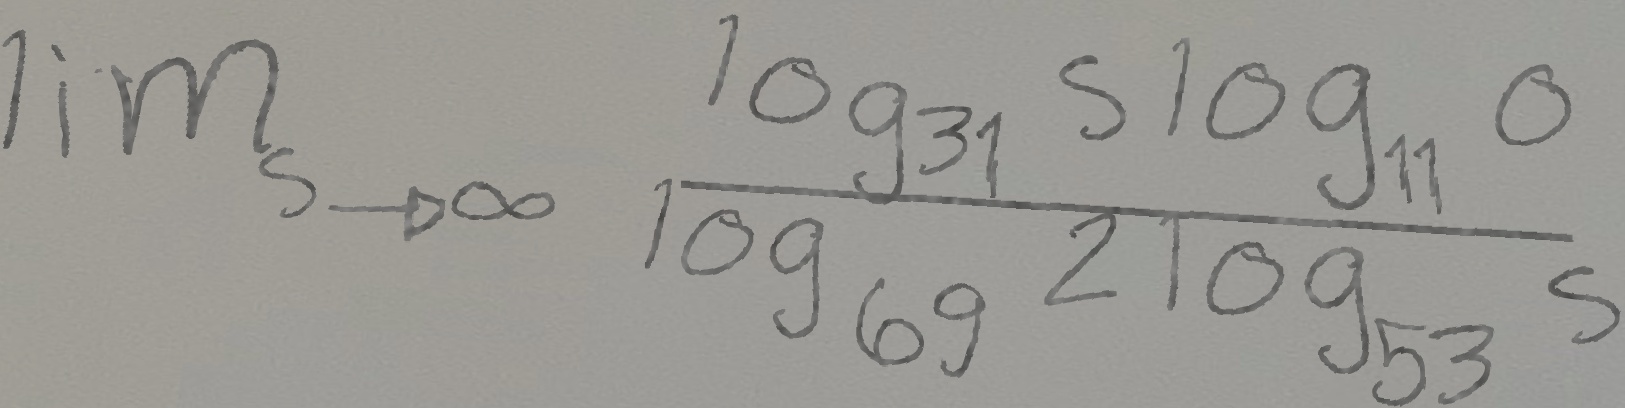 \lim_{s \to \infty} \frac{\log_{31} s \log_{11} o}{\log_{69} 2 \log_{53} s}